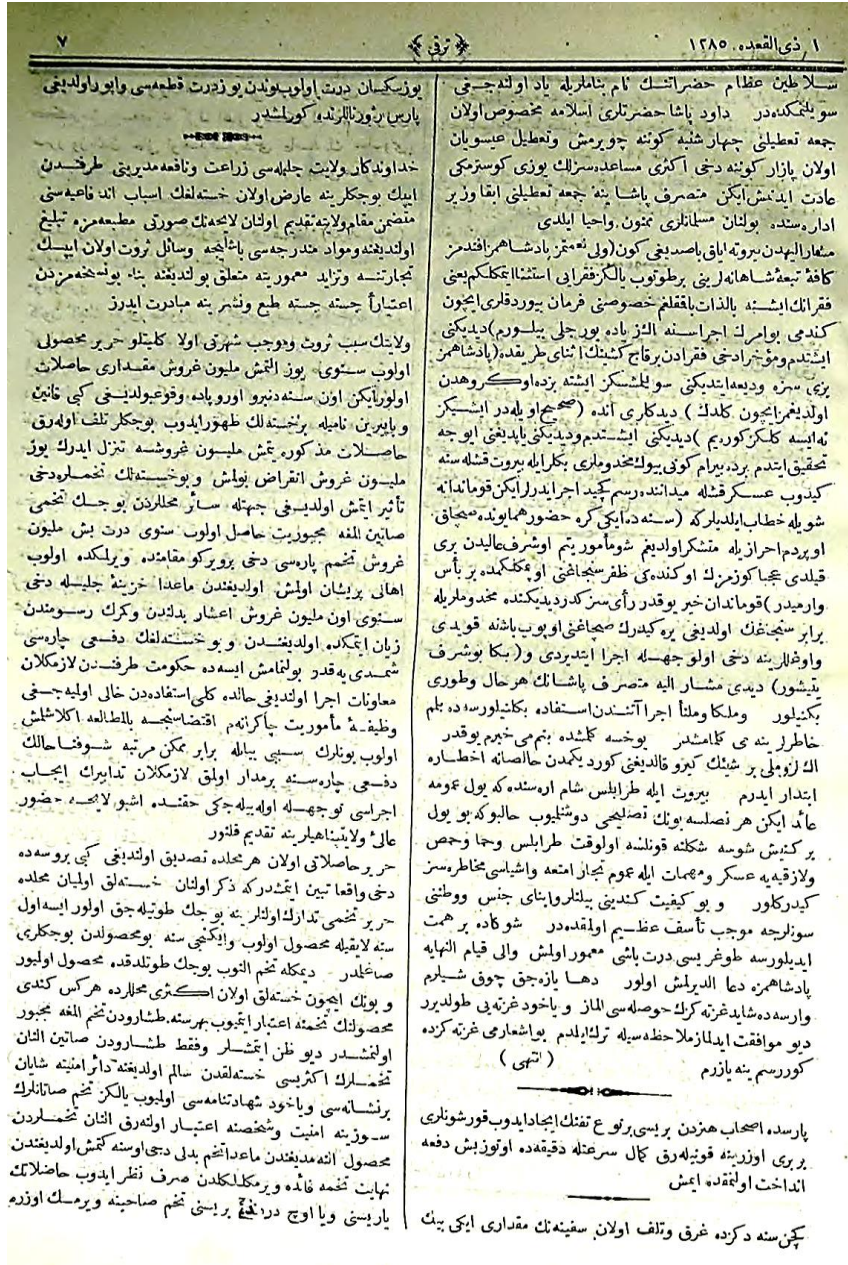 ١ ذی القعده. ١٢٨٥
﴿ ترقی ﴾
٧
سلاطین عظام حضراتنك نام بناملریله یاد اولنه جغی
سویلنمكده در داود پاشا حضرتلری اسلامه مخصوص اولان
جمعه تعطیلنی چهار شنبه كوننه چویرمش وتعطیل عیسویان
اولان پازار كوننه دخی اكثری مساعده سزلك یوزی كوسترمكی
عادت ایدنمش ایكن متصرف پاشا ینه جمعه تعطیلنی ابقا وزیر
اداره سنده بولنان مسلمانلری ممنون واحیا ایلدی
مشار الیهدن بیروته ایاق باصدیغی كون (ولی نعمتمز پادشاهمز افندمز
كافهٔ تبعهٔ شاهانه لرینی بر طوتوب یالكز فقرایی استثنا ایتمكلكم یعنی
فقرانك ایشنه بالذات باققلغم خصوصنی فرمان بیوردقلری ایچون
كندمی بو امرك اجراسنه الك زیاده بورجلی بیلورم) دیدیكنی
ایشتدم ومؤخرا دخی فقرادن برقاچ كشینك اثنای طریقده (پادشاهمز
بزی سزه ودیعه ایتدیكنی سویلمشسكز ایشته بزده اوكروهدن
اولدیغمز ایچون كلدك) دیدكلری آنده (صحیح اویله در ایشیكز
نه ایسه كلكز كوره یم) دیدیكنی ایشتدم ودیدیكنی یاپدیغنی ایوجه
تحقیق ایتدم برده بیرام كونی بیوك مخدوملری بكلر ایله بیروت قشله سنه
كیدوب عسكر قشله میداننده رسم كچید اجرا ایدرلر ایكن قوماندانه
شویله خطاب ایلدیلر كه (سنه ده ایكی كره حضور همایونده صنجاق
اوپردم احرازیله متشكر اولدیغم شو مأموریتم اوشرف عالیدن بری
قیلدی عجبا كوزمزك اوكنده كی ظفر سنجاغنی اوپمكلكمده بر بأس
وارمیدر) قوماندان خیر یوقدر رأی سز كدر دیدیكنده مخدوملریله
برابر سنجاغك اولدیغی یره كیدرك صنجاغنی اوپوب باشنه قویدی
واوغللرینه دخی اولوجهله اجرا ایتدیردی و(بكا بو شرف
یتیشور) دیدی مشار الیه متصرف پاشانك هر حال وطوری
بكنیلور وملكا وملتا اجرا آتندن استفاده بكلنیلور سه ده بلم
خاطرلرینه می كلمامشدر یوخسه كلمشده بنم می خبرم یوقدر
الك لزوملی بر شیئك كیرو قالدیغنی كوردیكمدن خالصانه اخطاره
ابتدار ایدرم بیروت ایله طرابلس شام اره سنده كه یول عمومه
عائد ایكن هر نصلسه بونك تصلیحی دوشنلیوب حالبوكه بو یول
بر كنیش شوسه شكلنه قونلسه اولوقت طرابلس وحما وحمص
ولازقیه یه عسكر ومهمات ایله عموم تجار امتعه واشیاسی مخاطره سز
كیدر كلور و بو كیفیت كندینی بیلنلر وابنای جنس ووطننی
سونلرجه موجب تأسف عظیم اولمقده در شو كاده بر همت
ایدیلورسه طوغریسی درت باشی معمور اولمش والی قیام النهایه
پادشاهمزه دعا الدیرلمش اولور دها یازه جق چوق شیلرم
وارسه ده شاید غزته كزك حوصله سی الماز و یاخود غزته یی طولدیرر
دیو موافقت ایدلمز ملاحظه سیله ترك ایلدم بو اشعارمی غزته كزده
كوررسم ینه یازرم ( انتهی )
پارسده اصحاب هنردن بریسی برنوع تفنك ایجاد ایدوب قورشونلری
بربری اوزرینه قونیله رق كمال سرعتله دقیقه ده اوتوز بش دفعه
انداخت اولنمقده ایمش
كچن سنه دكزده غرق وتلف اولان سفینه نك مقداری ایكی بیك
یوز یكسان درت اولوب بوندن یوز درت قطعه سی وابور اولدیغی
پارس ژورناللرنده كورلمشدر
خداوندكار ولایت جلیله سی زراعت ونافعه مدیریتی طرفندن
ایپك بوجكلرینه عارض اولان خسته لغك اسباب اندفاعیه سنی
متضمن مقام ولایته تقدیم اولنان لایحه نك صورتی مطبعه مزه تبلیغ
اولدیغنه ومواد مندرجه سی باشلیجه وسائل ثروت اولان ایپك
تجارتنه وتزاید معموریته متعلق بولندیغنه بناء بو نسخه مزدن
اعتباراً جسته جسته طبع ونشرینه مبادرت ایدرز
ولایتك سبب ثروت وموجب شهرتی اولا كلیتلو حریر محصولی
اولوب سنوی یوز التمش ملیون غروش مقداری حاصلات
اولور ایكن اون سنه دنبرو اوروپاده وقوعبولدیغی كبی قاتین
و پاپیرین نامیله برخسته لك ظهور ایدوب بوجكلر تلف اوله رق
حاصلات مذكوره یتمش ملیون غروشه تنزل ایدرك یوز
ملیون غروش انقراض بولمش و بو خسته نك تخملره دخی
تأثیر ایتمش اولدیغی جهتله سائر محللردن بوجك تخمی
صاتین المغه مجبوریت حاصل اولوب سنوی درت بش ملیون
غروش تخم پاره سی دخی ویركو مقامنده ویرلمكده اولوب
اهالی پریشان اولمش اولدیغندن ماعدا خزینهٔ جلیله دخی
سنوی اون ملیون غروش اعشار بدلندن وكرك رسومندن
زیان ایتمكده اولدیغندن و بو خسته لغك دفعی چاره سی
شمدی یه قدر بولنمامش ایسه ده حكومت طرفندن لازمكلان
معاونات اجرا اولندیغی حالده كلی استفاده دن خالی اولمیه جغی
وظیفهٔ مأموریت چاكرانه م اقتضاسنجه بالمطالعه اكلاشلمش
اولوب بونلرك سببی بیانله برابر ممكن مرتبه شو فنا حالك
دفعی چاره سنه برمدار اولمق لازمكلان تدابیرك ایجاب
اجراسی نوجهله اوله بیله جكی حقنده اشبو لایحه حضور
عالیٔ ولایتپناهیلرینه تقدیم قلنور
حریر حاصلاتی اولان هر محلده تصدیق اولندیغی كبی بروسه ده
دخی واقعا تبین ایتمشدر كه ذكر اولنان خسته لق اولمیان محلده
حریر تخمی تدارك اولنلرینه بوجك طوتیله جق اولور ایسه اول
سنه لایقیله محصول اولوب وایكنجی سنه بو محصولدن بوجكلری
صاغلمدر دیمكله تخم النوب بوجك طوتلدقده محصول اولمیور
و بونك ایچون خسته لق اولان اكثری محللرده هركس كندی
محصولنك تخمنه اعتبار ایتمیوب بهرسنه طشارودن تخم المغه مجبور
اولمشدر دیو ظن ایتمشلر وفقط طشارودن صاتین النان
تخملرك اكثریسی خسته لقدن سالم اولدیغنه دائر امنیته شایان
برنشانه سی ویاخود شهادتنامه سی اولمیوب یالكز تخم صاتانلرك
سوزینه امنیت وشخصنه اعتبار اوله رق النان تخملردن
محصول النه مدیغندن ماعدا تخم بدلی دخی اوسته كتمش اولدیغندن
نهایت تخمه فائده ویرمكلكلكدن صرف نظر ایدوب حاصلاتك
یاریسنی ویا اوچ درتده بریسنی تخم صاحبنه ویرمك اوزره